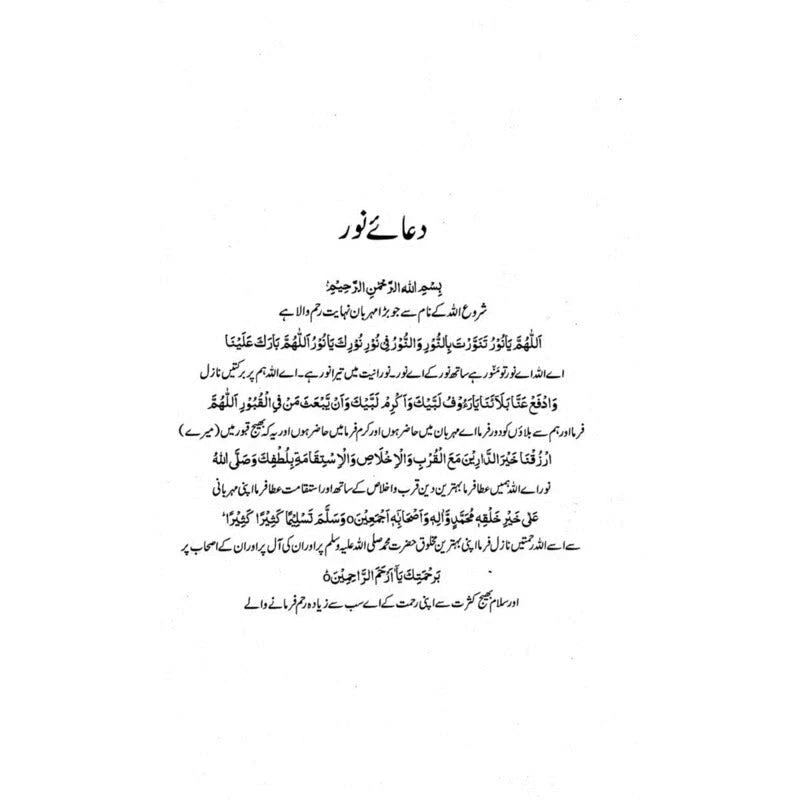 دعائے نور
بِسْمِ اللهِ الرَّحْمٰنِ الرَّحِيْمِ
شروع اللہ کے نام سے جو بڑا مہربان نہایت رحم والا ہے
اَللّٰهُمَّ يَا نُوْرُ تَنَوَّرْتَ بِالنُّوْرِ وَالنُّوْرُ فِىْ نُوْرِ نُوْرِكَ يَا نُوْرُ اَللّٰهُمَّ بَارِكْ عَلَيْنَا
اے اللہ اے نور تو منّور ہے ساتھ نور کے اے نور۔ نورانیت میں تیرا نور ہے۔ اے اللہ ہم پر برکتیں نازل
وَادْفَعْ عَنَّا بَلَآئَنَا يَارَءُوْفُ لَبَّيْكَ وَاَكْرِمْ لَبَّيْكَ وَاَنْ يَّبْعَثَ مَنْ فِى الْقُبُوْرِ اَللّٰهُمَّ
فرما اور ہم سے بلاؤں کو دور فرما اے مہربان میں حاضر ہوں اور کرم فرما میں حاضر ہوں اور یہ کہ بھیج قبور میں (میرے)
ارْزُقْنَا خَيْرَ الدَّارَيْنِ مَعَ الْقُرْبِ وَالْاِخْلَاصِ وَالْاِسْتِقَامَةِ بِلُطْفِكَ وَصَلَّى اللهُ
نور اے اللہ ہمیں عطا فرما بہترین دین قرب و اخلاص کے ساتھ اور استقامت عطا فرما اپنی مہربانی
عَلٰى خَيْرِ خَلْقِهٖ مُحَمَّدٍ وَّاٰلِهٖ وَاَصْحَابِهٖ اَجْمَعِيْنَ ۝ وَسَلَّمَ تَسْلِيْمًا كَثِيْرًا كَثِيْرًا
سے اے اللہ رحمتیں نازل فرما اپنی بہترین مخلوق حضرت محمد صلی اللہ علیہ وسلم پر اور ان کی آل پر اور ان کے اصحاب پر
بَرَحْمَتِكَ يَا اَرْحَمَ الرَّاحِمِيْنَ ۝
اور سلام بھیج کثرت سے اپنی رحمت کے اے سب سے زیادہ رحم فرمانے والے